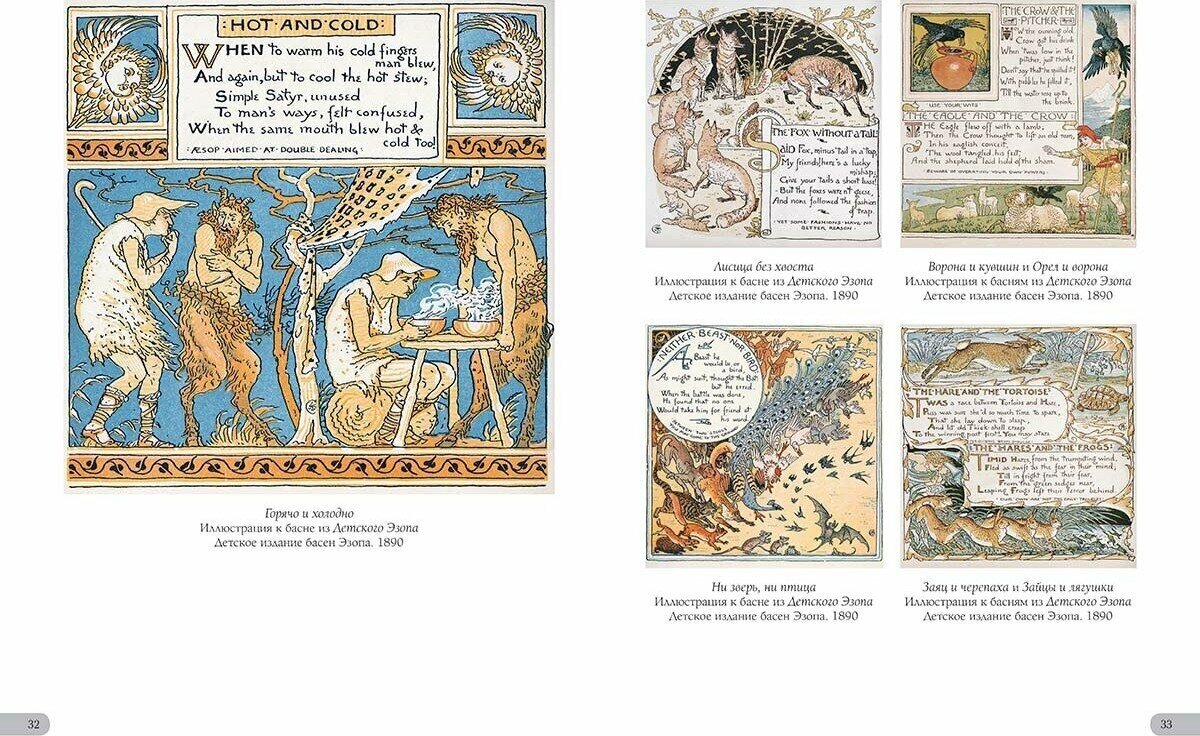 : HOT AND COLD :
WHEN to warm his cold fingers
man blew,
And again, but to cool the hot stew;
Simple Satyr, unused
To man's ways, felt confused,
When the same mouth blew hot &
cold too!
: ÆSOP · AIMED · AT · DOUBLE DEALING :
Горячо и холодно
Иллюстрация к басне из Детского Эзопа
Детское издание басен Эзопа. 1890
32
THE FOX WITHOUT A TAIL
SAID Fox, minus tail in a trap,
My friends! here's a lucky
mishap;
Give your tails a short lease!
But the foxes weren't geese,
And none followed the fashion
of trap.
· YET SOME FASHIONS HAVE NO
BETTER REASON ·
Лисица без хвоста
Иллюстрация к басне из Детского Эзопа
Детское издание басен Эзопа. 1890
THE CROW & THE
PITCHER
HOW the cunning old
Crow got his drink
When 'twas low in the
pitcher, just think!
Don't say that he spilled it!
With pebbles he filled it,
Till the water rose up to
the brink.
· USE YOUR WITS ·
THE EAGLE AND THE CROW :
THE Eagle flew off with a lamb;
Then the Crow thought to lift an old ram,
In his eaglish conceit,
The wool tangled his feet,
And the shepherd laid hold of the sham.
· BEWARE OF OVERRATING YOUR OWN POWERS ·
Ворона и кувшин и Орел и ворона
Иллюстрация к басням из Детского Эзопа
Детское издание басен Эзопа. 1890
: NEITHER BEAST NOR BIRD :
A Beast he
would be, or
a bird,
As might suit, thought the Bat:
but he erred.
When the battle was done,
He found that no one
Would take him for friend at
his word
BETWEEN TWO STOOLS
YOU MAY COME TO THE GROUND
Ни зверь, ни птица
Иллюстрация к басне из Детского Эзопа
Детское издание басен Эзопа. 1890
THE HARE AND THE TORTOISE
'TWAS a race between Tortoise and Hare,
Puss was sure she'd so much time to spare,
That she lay down to sleep,
And let old Thick-shell creep
To the winning post first! You may stare
THE HARES AND THE FROGS :
TIMID Hares, from the trumpeting wind,
Fled as swift as the fear in their mind;
Till in fright from their fear,
From the green sedges near,
Leaping Frogs left their terror behind.
· OUR OWN ARE NOT THE ONLY TROUBLES ·
Заяц и черепаха и Зайцы и лягушки
Иллюстрация к басням из Детского Эзопа
Детское издание басен Эзопа. 1890
33